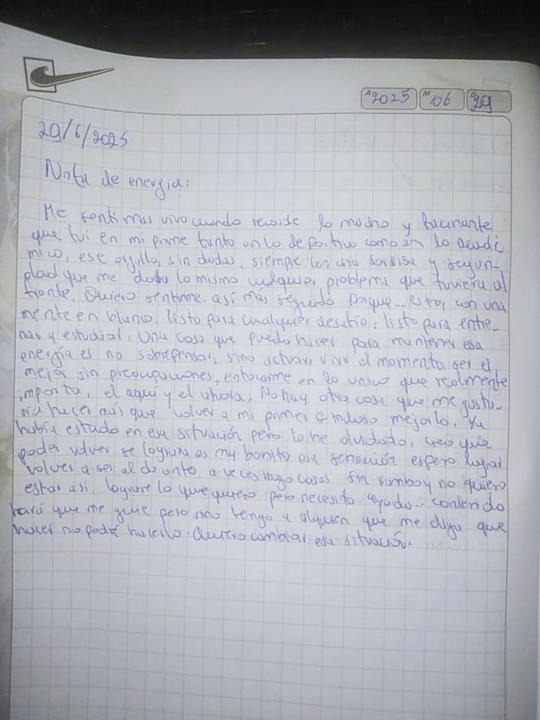 A 2025 M 06 D 29
29/6/2025
Nota de energia:
Me senti mas vivo cuando recorde lo mucho y
que fui en mi prime tanto en lo deportivo como en lo academi
mico, ese orgullo, sin dudar, siempre con una sonrisa y segun
dad que me daba lo mismo cualquier problema que tuviera al
frente. Quiero sentirme así mas seguido porque... estoy con una
mente en blanco, listo para cualquier desafio, listo para entre-
nar y estudiar. Una cosa que puedo hacer para mantener esa
energia es no sobrepensar, sino actuar vivir el momento, ser el
mejor sin preocupaciones, enfocarme en lo unico que realmente
importa, el aqui y el ahora. No hay otra cosa que me gusta-
ria hacer más que volver a mi primer e incluso mejorlo. Ya
habia estado en esa situación pero lo he olvidado, creo que
poder volver se lograra es muy bonito esa sensación espero lograr
volver a ser el de antes, a veces hago cosas sin rumbo y no quiero
estar asi, lograre lo que quiero pero necesito ayuda... contenido
hará que me guie pero sino tengo a alguien que me diga que
hacer no podré hacerlo. Quiero cambiar esa situación.